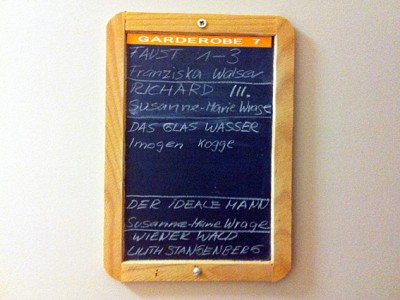 GARDEROBE 7
FAUST 1-3
Franziska Walser
RICHARD III.
Susanne-Marie Wrage
DAS GLAS WASSER
Imogen Kogge
DER IDEALE MANN
Susanne-Marie Wrage
WIENER WALD
LILITH STANGENBERG